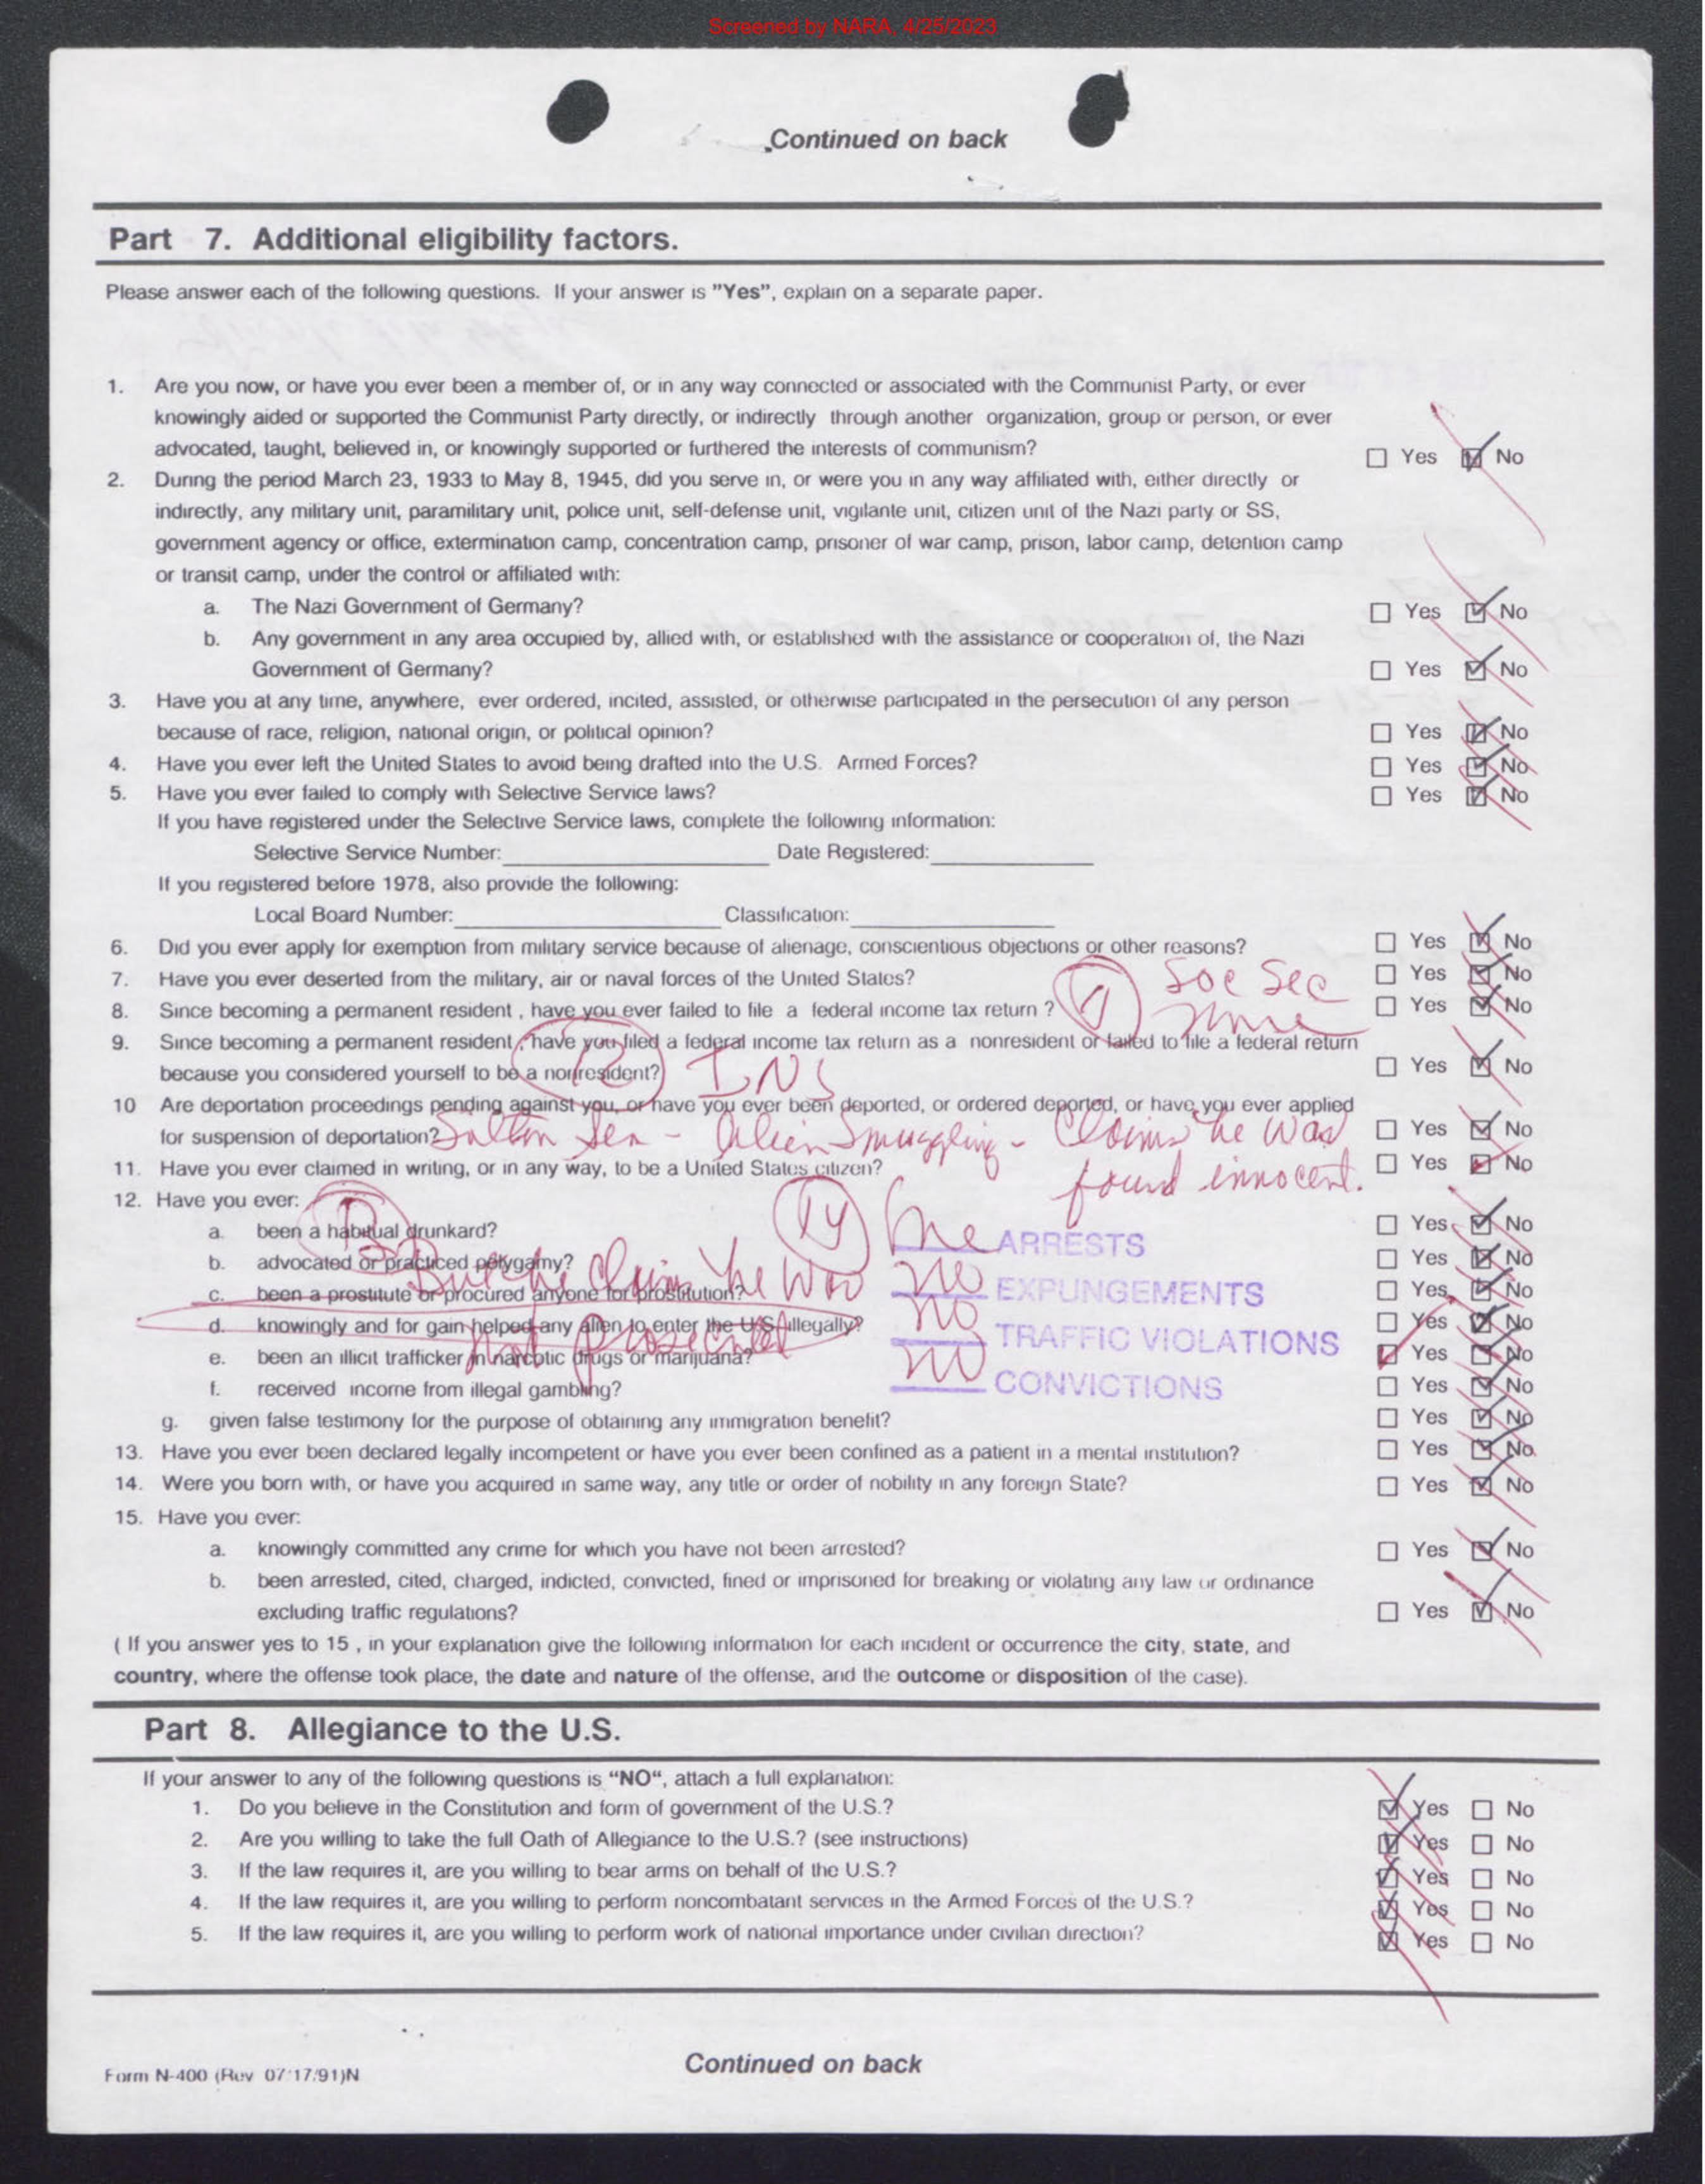 Screened by NARA, 4/25/2023
Continued on back
Part 7. Additional eligibility factors.
Please answer each of the following questions. If your answer is "Yes", explain on a separate paper.
1. Are you now, or have you ever been a member of, or in any way connected or associated with the Communist Party, or ever
knowingly aided or supported the Communist Party directly, or indirectly through another organization, group or person, or ever
advocated, taught, believed in, or knowingly supported or furthered the interests of communism? Yes No
2. During the period March 23, 1933 to May 8, 1945, did you serve in, or were you in any way affiliated with, either directly or
indirectly, any military unit, paramilitary unit, police unit, self-defense unit, vigilante unit, citizen unit of the Nazi party or SS,
government agency or office, extermination camp, concentration camp, prisoner of war camp, prison, labor camp, detention camp
or transit camp, under the control or affiliated with:
a. The Nazi Government of Germany? Yes No
b. Any government in any area occupied by, allied with, or established with the assistance or cooperation of, the Nazi
Government of Germany? Yes No
3. Have you at any time, anywhere, ever ordered, incited, assisted, or otherwise participated in the persecution of any person
because of race, religion, national origin, or political opinion? Yes No
4. Have you ever left the United States to avoid being drafted into the U.S. Armed Forces? Yes No
5. Have you ever failed to comply with Selective Service laws? Yes No
If you have registered under the Selective Service laws, complete the following information:
Selective Service Number: Date Registered:
If you registered before 1978, also provide the following:
Local Board Number: Classification:
6. Did you ever apply for exemption from military service because of alienage, conscientious objections or other reasons? Yes No
7. Have you ever deserted from the military, air or naval forces of the United States? Soc Sec Yes No
8. Since becoming a permanent resident , have you ever failed to file a federal income tax return ? Yes No
9. Since becoming a permanent resident , have you filed a federal income tax return as a nonresident or failed to file a federal return
because you considered yourself to be a nonresident? INS Yes No
10 Are deportation proceedings pending against you, or have you ever been deported, or ordered deported, or have you ever applied
for suspension of deportation? Salton Sea - Alien Smuggling - Claims he was Yes No
11. Have you ever claimed in writing, or in any way, to be a United States citizen? found innocent. Yes No
12. Have you ever:
a. been a habitual drunkard? ARRESTS Yes No
b. advocated or practiced polygamy? But he Claims he was Yes No
c. been a prostitute or procured anyone for prostitution? no EXPUNGEMENTS Yes No
d. knowingly and for gain helped any alien to enter the U.S. illegally? no TRAFFIC VIOLATIONS Yes No
not prosecuted
e. been an illicit trafficker in narcotic drugs or marijuana? no CONVICTIONS Yes No
f. received income from illegal gambling? Yes No
g. given false testimony for the purpose of obtaining any immigration benefit? Yes No
13. Have you ever been declared legally incompetent or have you ever been confined as a patient in a mental institution? Yes No
14. Were you born with, or have you acquired in same way, any title or order of nobility in any foreign State? Yes No
15. Have you ever:
a. knowingly committed any crime for which you have not been arrested? Yes No
b. been arrested, cited, charged, indicted, convicted, fined or imprisoned for breaking or violating any law or ordinance
excluding traffic regulations? Yes No
( If you answer yes to 15 , in your explanation give the following information for each incident or occurrence the city, state, and
country, where the offense took place, the date and nature of the offense, and the outcome or disposition of the case).
Part 8. Allegiance to the U.S.
If your answer to any of the following questions is "NO", attach a full explanation:
1. Do you believe in the Constitution and form of government of the U.S.? Yes No
2. Are you willing to take the full Oath of Allegiance to the U.S.? (see instructions) Yes No
3. If the law requires it, are you willing to bear arms on behalf of the U.S.? Yes No
4. If the law requires it, are you willing to perform noncombatant services in the Armed Forces of the U.S.? Yes No
5. If the law requires it, are you willing to perform work of national importance under civilian direction? Yes No
Continued on back
Form N-400 (Rev 07/17/91)N